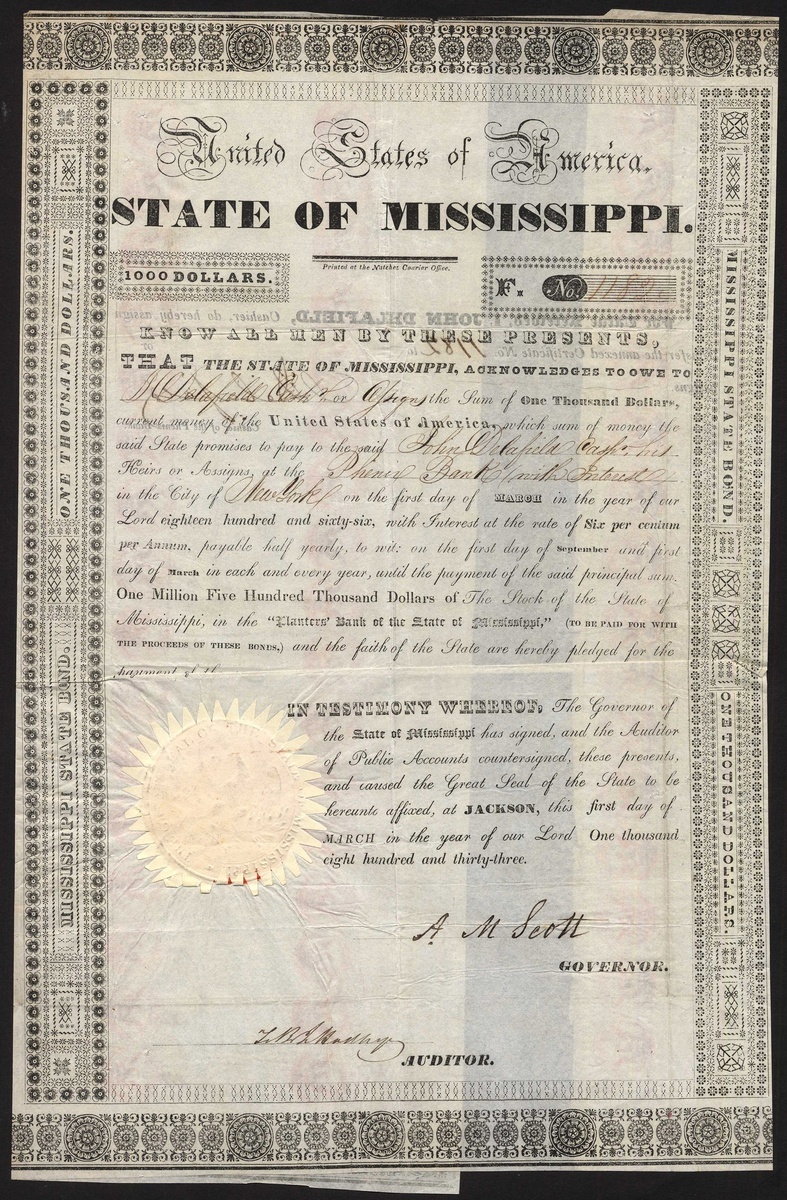 United States of America.
STATE OF MISSISSIPPI.
Printed at the Natchez Courier Office.
1000 DOLLARS.
F. No.
KNOW ALL MEN BY THESE PRESENTS,
THAT THE STATE OF MISSISSIPPI, ACKNOWLEDGES TO OWE TO
J Delafield Cashr. or Assigns the Sum of One Thousand Dollars,
current money of the United States of America, which sum of money the
said State promises to pay to the said John Delafield Cashr. his
Heirs or Assigns, at the Phenix Bank with Interest
in the City of New York on the first day of MARCH in the year of our
Lord eighteen hundred and sixty-six, with Interest at the rate of Six per centum
per Annum, payable half yearly, to wit: on the first day of September and first
day of March in each and every year, until the payment of the said principal sum.
One Million Five Hundred Thousand Dollars of The Stock of the State of
Mississippi, in the "Planters' Bank of the State of Mississippi," (TO BE PAID FOR WITH
THE PROCEEDS OF THESE BONDS,) and the faith of the State are hereby pledged for the
IN TESTIMONY WHEREOF, The Governor of
the State of Mississippi has signed, and the Auditor
of Public Accounts countersigned, these presents,
and caused the Great Seal of the State to be
hereunto affixed, at JACKSON, this first day of
MARCH in the year of our Lord One thousand
eight hundred and thirty-three.
A M Scott
GOVERNOR.
AUDITOR.
MISSISSIPPI STATE BOND. ONE THOUSAND DOLLARS.
MISSISSIPPI STATE BOND. ONE THOUSAND DOLLARS.